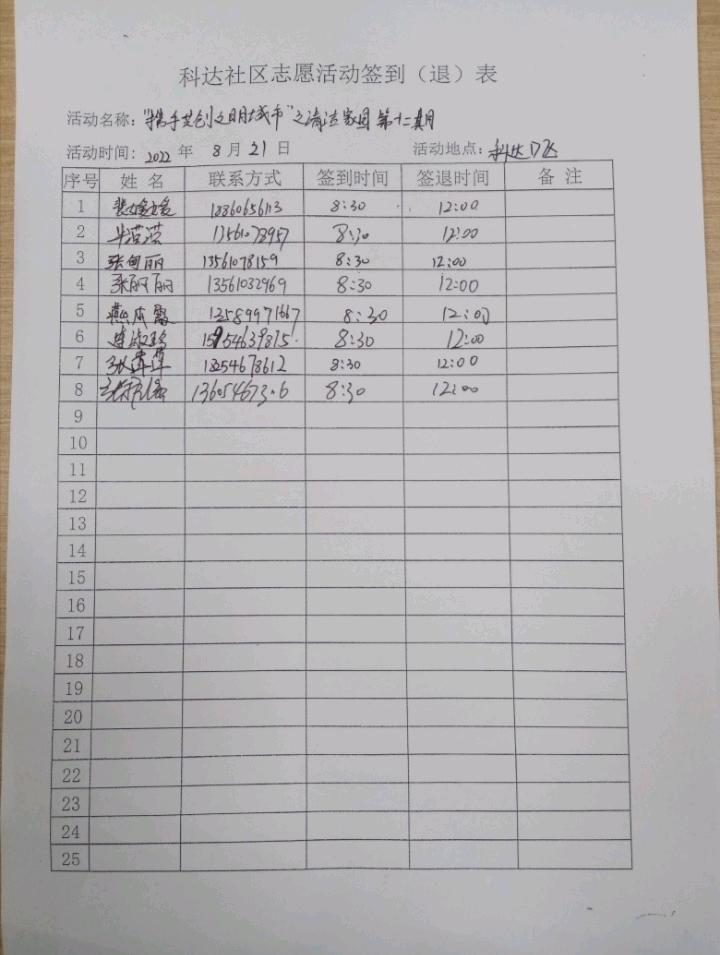 科达社区志愿活动签到（退）表
活动名称：“携手共创文明城市”之清洁家园 第十二期
活动时间：2022 年 8 月 21 日 活动地点：科达
序号 姓名 联系方式 签到时间 签退时间 备注
1 18860656113 8:30 12:00
2 13561078957 8:30 12:00
3 13561078159 8:30 12:00
4 张丽丽 13561032969 8:30 12:00
5 13589971667 8:30 12:00
6 15954639815 8:30 12:00
7 18254678612 8:30 12:00
8 8:30 12:00
9
10
11
12
13
14
15
16
17
18
19
20
21
22
23
24
25